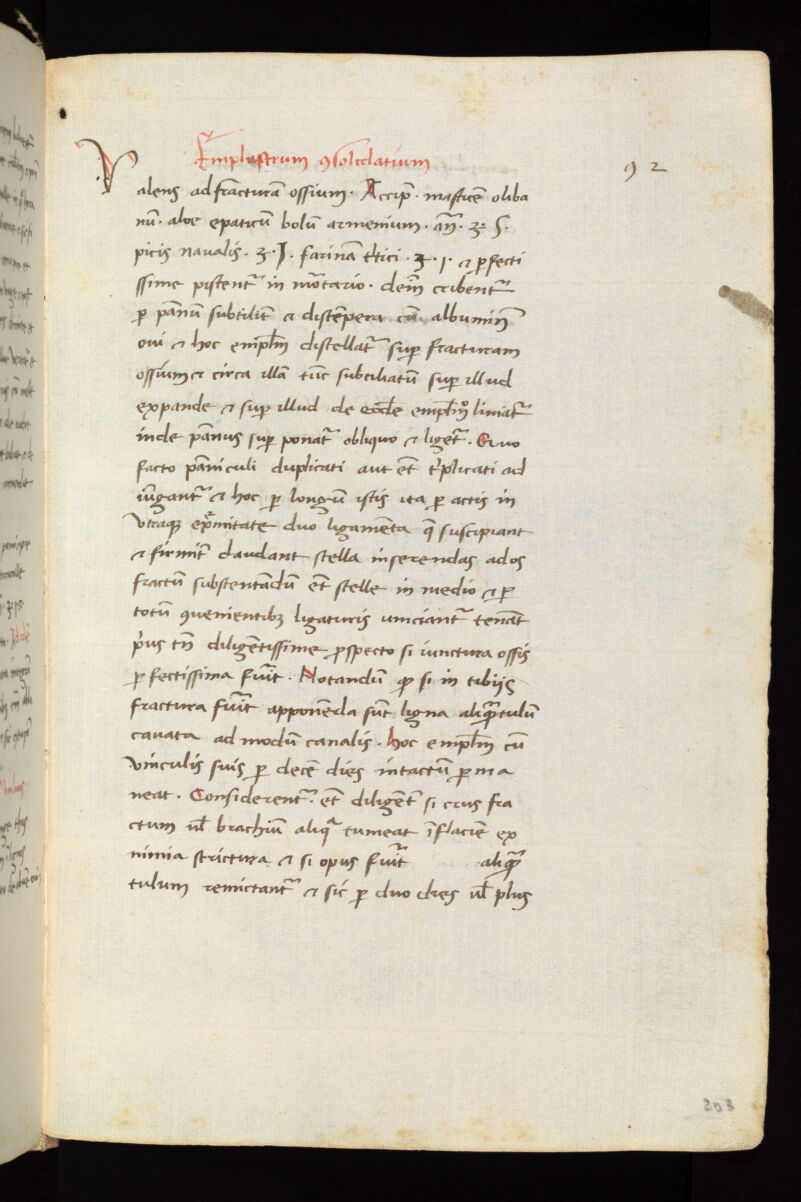 Emplastrum ꝯsolidatiuum
92
Valens ad fracturã ossium · Accip̃ · masticẽ oliba
nũ · aloe epaticũ bolũ armenium · añ · ʒ · S ·
picis naualis · ʒ · J · farinã t̾tici · ʒ · j · ⁊ ꝑfecti
ssime pistent᷑ in mõtario · deiñ cribent᷑
ꝑ pãnũ subtilit̃ ⁊ distẽpera cũ albumiñ
oui ⁊ hoc emp̃lm distellat᷑ suꝑ fracturam
ossium ⁊ circa illã tũc subtiliatũ suꝑ illud
expande ⁊ suꝑ illud de eodẽ emp̃lm̊ liniat᷑
inde pãnus suꝑ ponat᷑ obliquo ⁊ liget᷑ · Quo
facto pãniculi duplicati aut et̃ t̾plicati ad
iũgant᷑ ⁊ hoc ꝑ longũ istis ita ꝑ actis in
vtraqꝫ ext̾mitate duo ligamẽta q̃ suscipiant
⁊ firmit̃ claudant stella inserendas ad os
fractũ substentãdũ et̃ stelle in medio ⁊ ꝑ
totũ ꝯuenientibꝫ ligaturis vnciant᷑ tenãt
p̾us tñ diligẽtissime ꝓspecto si iunctura ossis
ꝑfectissima fu̾it · Notandũ ꝙ si in tibijs
fractura fu̾it apponẽda sũt ligna aliq̃tulũ
cauata ad modũ canalis · hoc emp̃lm cũ
vinculis suis ꝑ decẽ dies intactũ ꝑma
neat · Considerent᷑ · et̃ diligẽt̃ si crus fra
ctum ul̃ brachiũ aliq̃ tumeat ĩflaciẽ ex
nimia strictura ⁊ si opus fu̾it · aliq̃
tulum remictant᷑ ⁊ sic ꝑ duo dies ul̃ plus
203